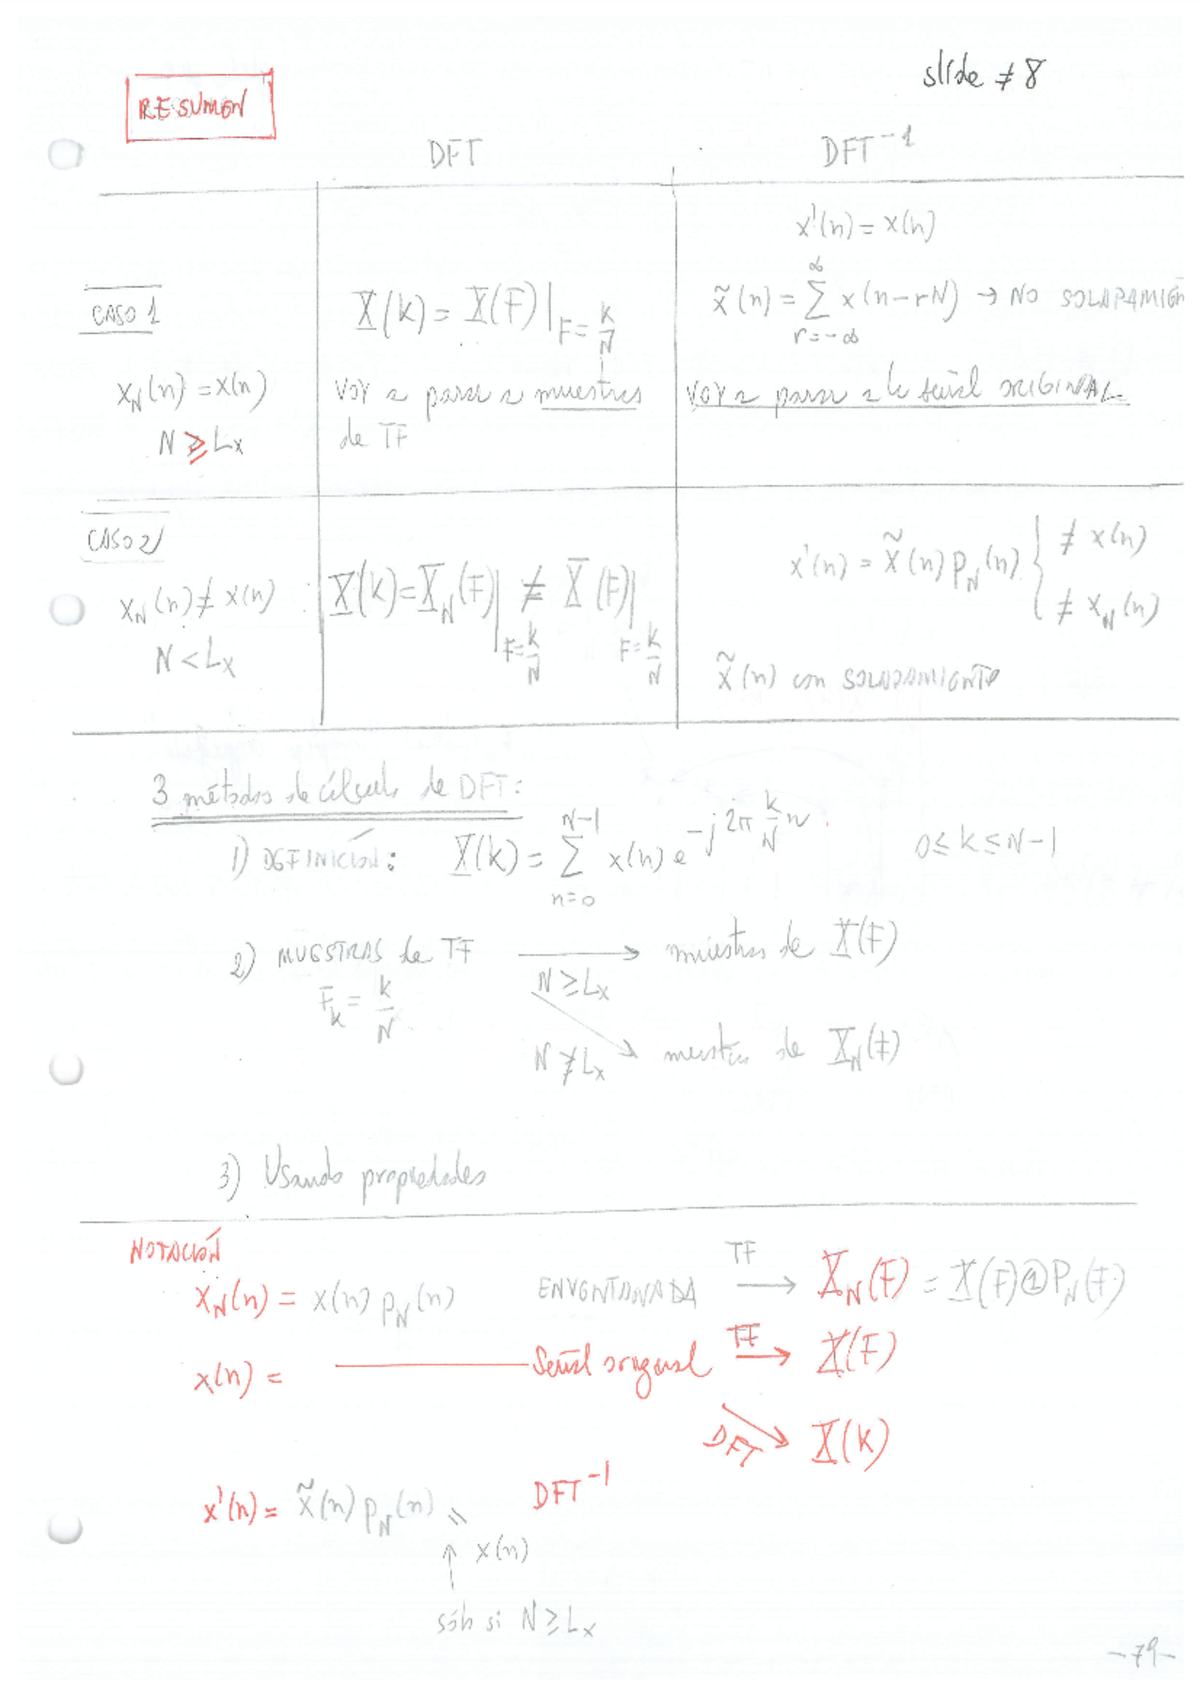 slide ≠ 8
RESUMEN
DFT
DFT⁻¹
CASO 1
x_N(n) = x(n)
N ≥ Lx
X(k) = X(F)|_{F = k/N}
voy a parar a muestras
de TF
x'(n) = x(n)
x̃(n) = ∑_{r=-∞}^{∞} x(n-rN) → NO SOLAPAMIEN
VOY a parar a la señal ORIGINAL
CASO 2
x_N(n) ≠ x(n)
N < Lx
X(k) = X_N(F)|_{F = k/N} ≠ X(F)|_{F = k/N}
x'(n) = x̃(n) p_N(n) { ≠ x(n)
≠ x_N(n)
x̃(n) con SOLAPAMIENTO
3 métodos de cálculo de DFT:
1) DEFINICIÓN: X(k) = ∑_{n=0}^{N-1} x(n) e^{-j2π (k/N) n} 0 ≤ k ≤ N-1
2) MUESTRAS de TF → muestras de X(F)
N ≥ Lx
F_k = k/N
N ≱ Lx → muestras de X_N(F)
3) Usando propiedades
NOTACIÓN
x_N(n) = x(n) p_N(n) ENVENTANADA TF → X_N(F) = X(F) ① P_N(F)
x(n) = Señal original TF → X(F)
DFT → X(k)
x'(n) = x̃(n) p_N(n) = DFT⁻¹
↑ x(n)
sólo si N ≥ Lx
-79-